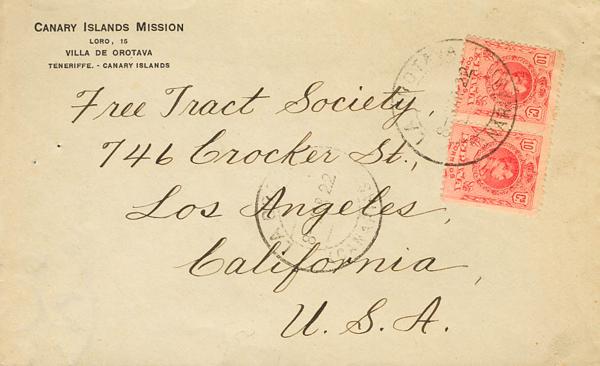 CANARY ISLANDS MISSION
LORO, 15
VILLA DE OROTAVA
TENERIFFE. - CANARY ISLANDS
Free Tract Society,
746 Crocker St.,
Los Angeles,
California,
U. S. A.
10
Cs
10
Cs
22
CANARIAS